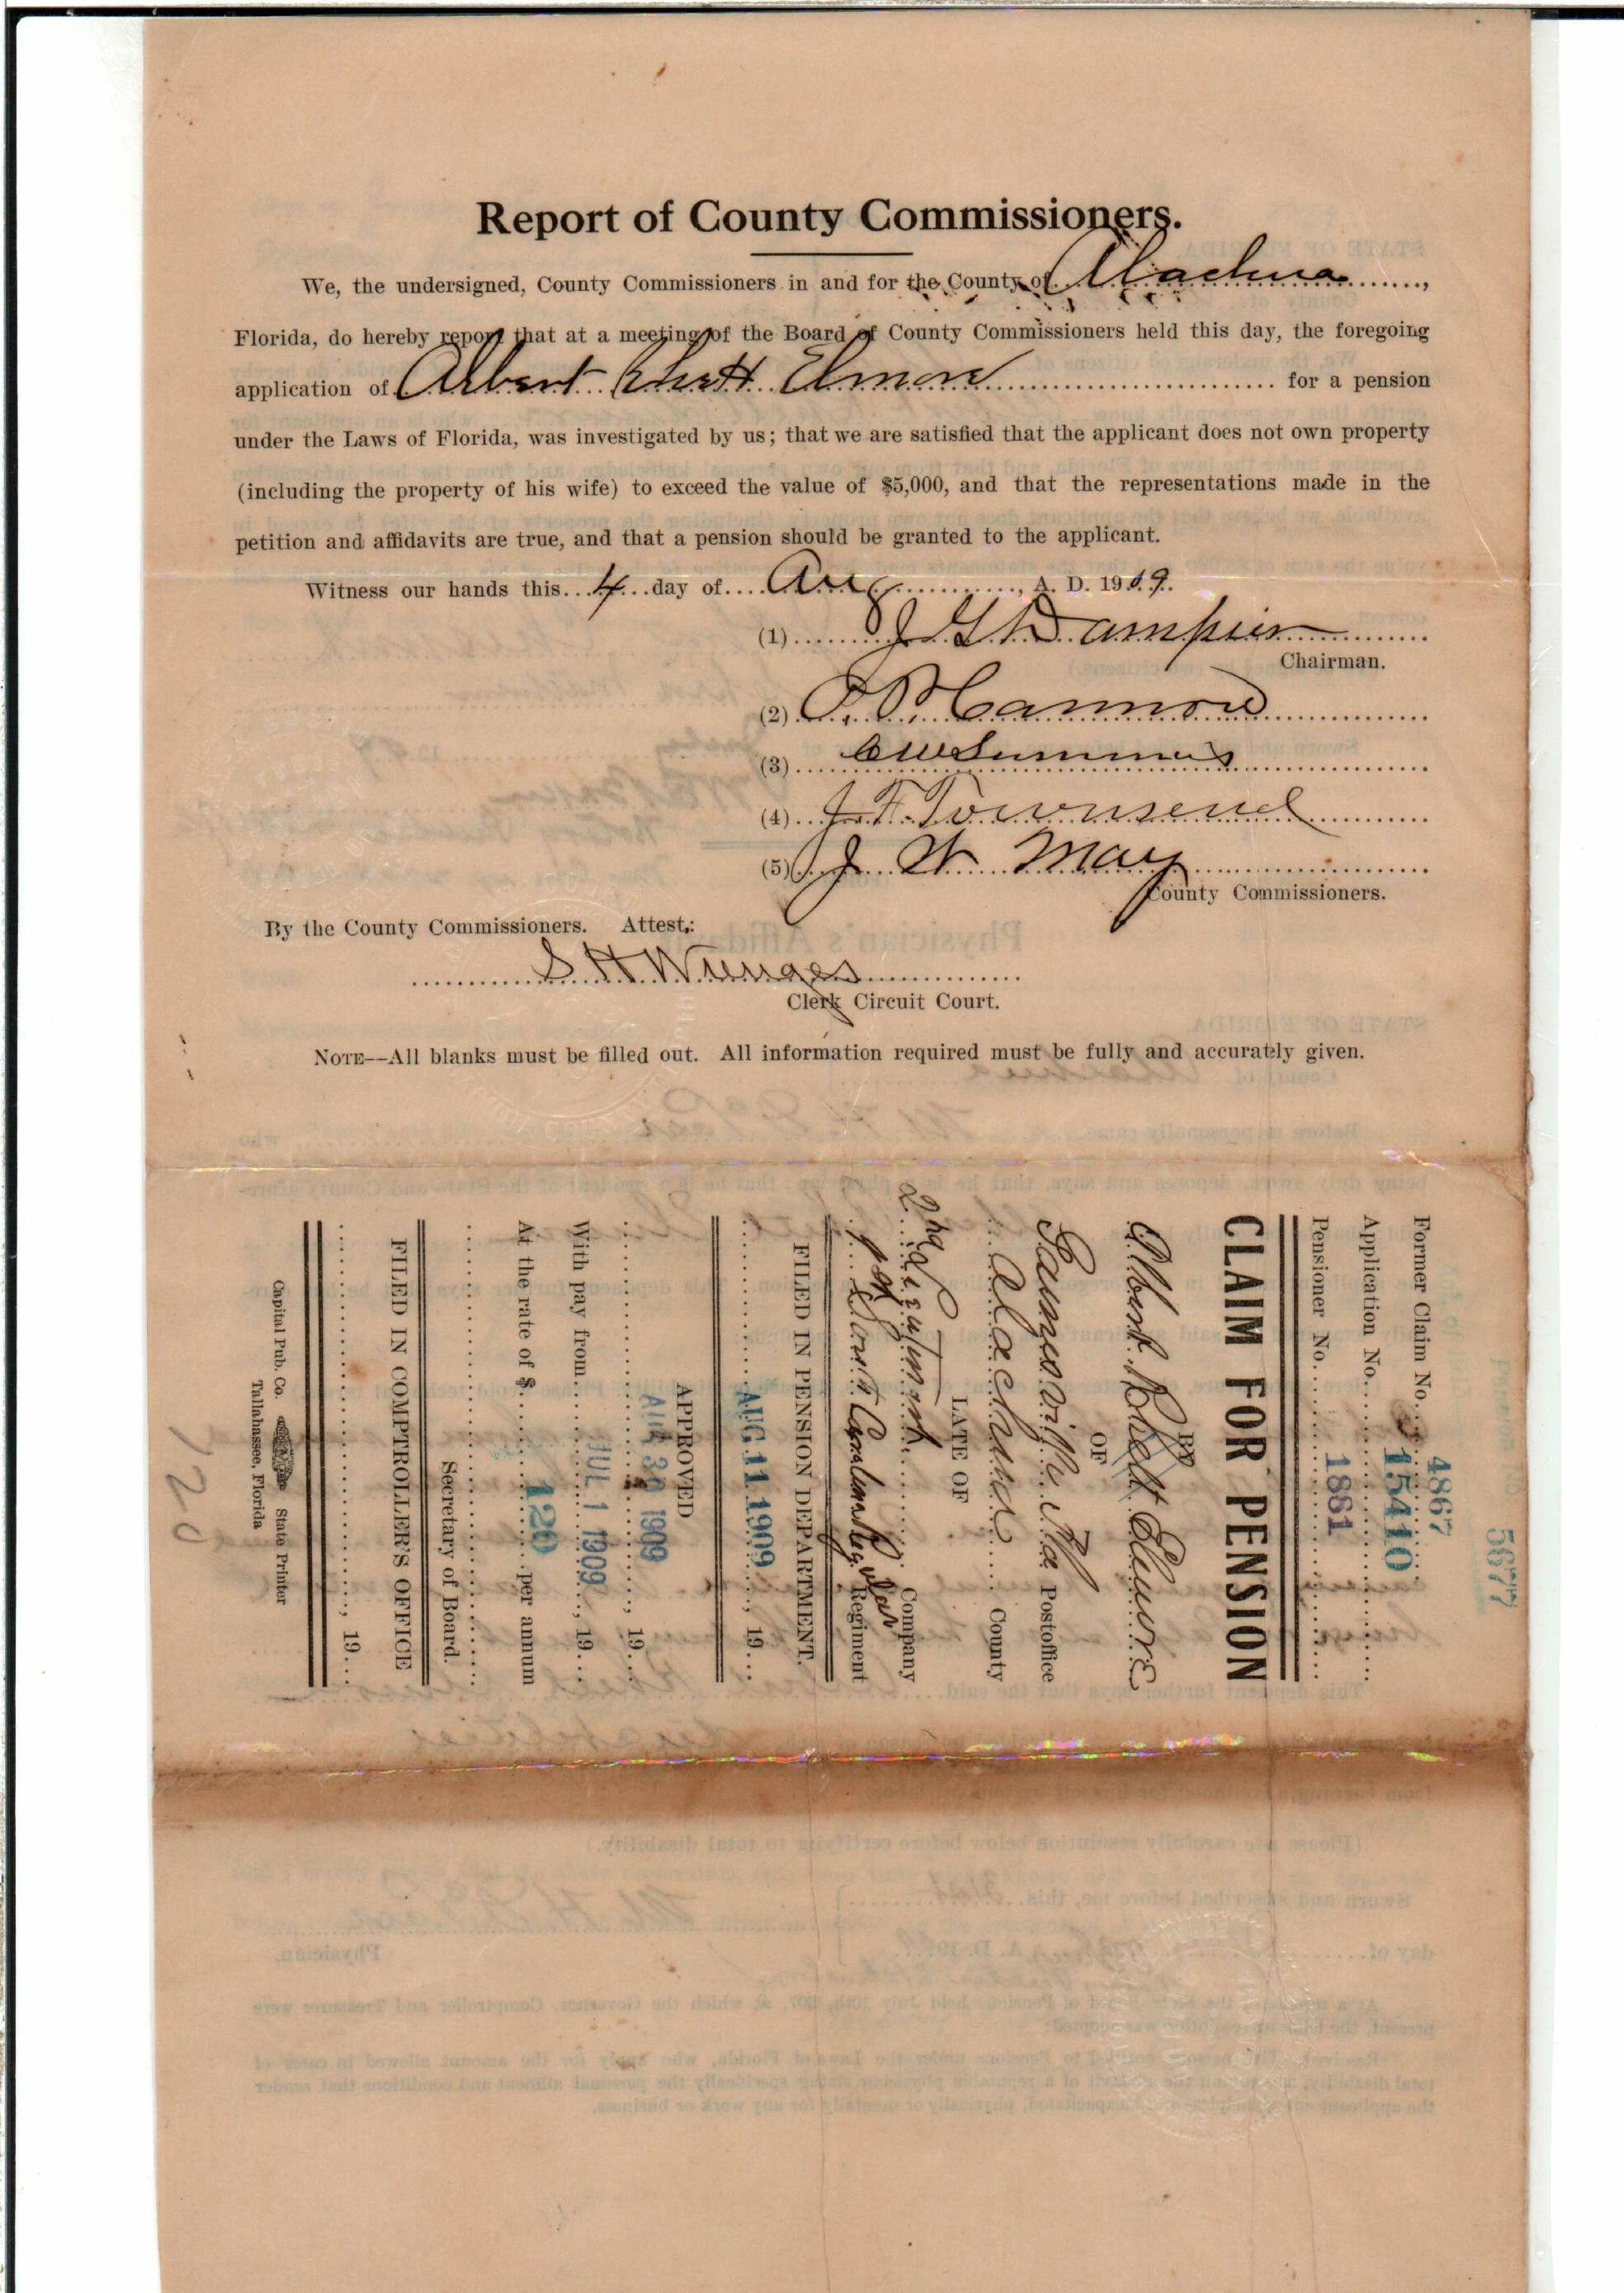 Report of County Commissioners.
We, the undersigned, County Commissioners in and for the County of Alachua,
Florida, do hereby report that at a meeting of the Board of County Commissioners held this day, the foregoing
application of Albert Rhett Elmore for a pension
under the Laws of Florida, was investigated by us; that we are satisfied that the applicant does not own property
(including the property of his wife) to exceed the value of $5,000, and that the representations made in the
petition and affidavits are true, and that a pension should be granted to the applicant.
Witness our hands this 4 day of Aug, A. D. 1909.
(1) J G Dampier
Chairman.
(2) P. P. Cannon
(3) C W Summers
(4) J. F. Townsend
(5) J. W. May
County Commissioners.
By the County Commissioners. Attest:
S H Wienges
Clerk Circuit Court.
NOTE--All blanks must be filled out. All information required must be fully and accurately given.
5677
4867
Former Claim No.
Application No. 15410
Pensioner No. 1881
CLAIM FOR PENSION
BY
Albert Rhett Elmore
OF
Gainesville Fla Postoffice
Alachua County
LATE OF
2nd Lieutenant Company
1st South Carolina Regular Regiment
FILED IN PENSION DEPARTMENT.
AUG 11 1909, 19
APPROVED
AUG 30 1909, 19
With pay from JUL 1 1909, 19
At the rate of $ 120 per annum
Secretary of Board.
FILED IN COMPTROLLER'S OFFICE
, 19
Capital Pub. Co. State Printer
Tallahassee, Florida
120